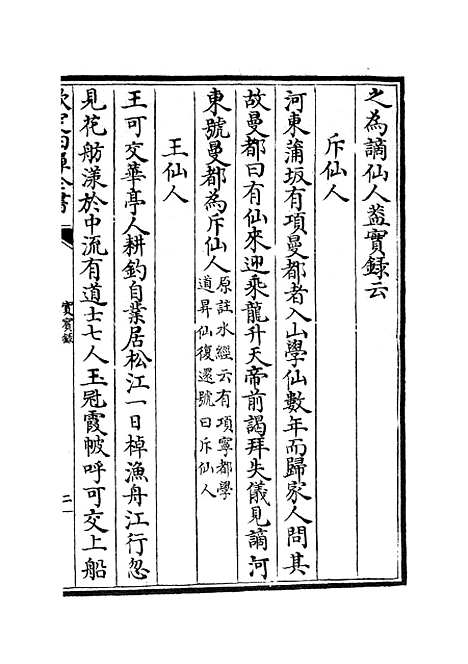 之為謫仙人葢實録云
斥仙人
河東蒲坂有項曼都者入山學仙數年而歸家人問其
故曼都曰有仙來迎乘龍升天帝前謁拜失儀見謫河
東號曼都為斥仙人原註水經云有項寧都學
道昇仙復還號曰斥仙人
王仙人
王可交華亭人耕釣自業居松江一日棹漁舟江行忽
見花舫漾於中流有道士七人玉冠霞帔呼可交上船
欽定四庫全書
實賓録
二